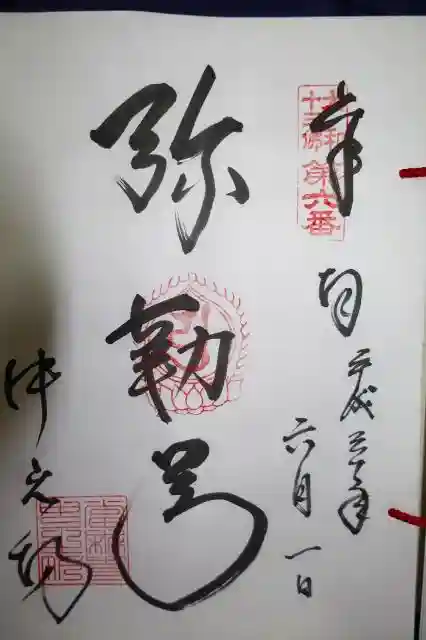 奉拝
大和
十三佛
第六番
平成三十年
六月一日
弥勒尊
中之坊